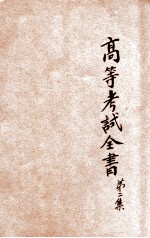 高等考試全書
第二集